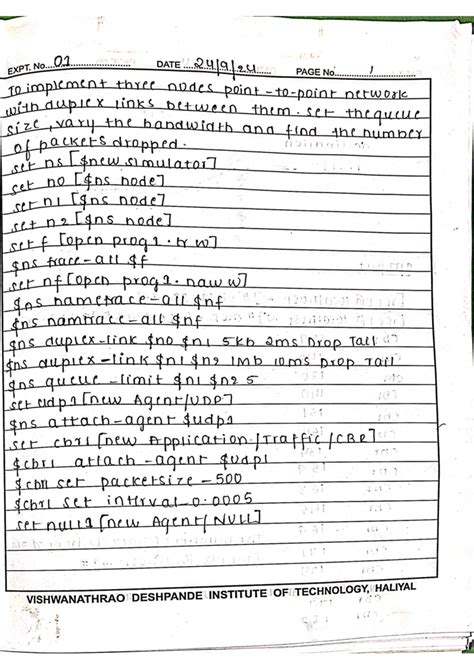 EXPT. No. 01 DATE 24/9/24 PAGE No. 1
To implement three nodes point-to-point network
with duplex links between them. set the queue
size, vary the bandwidth and find the number
of packets dropped.
set ns [$new simulator]
set n0 [$ns node]
set n1 [$ns node]
set n2 [$ns node]
set f [open prog1.tr w]
$ns trace-all $f
set nf [open prog1.naw w]
$ns nametrace-all $nf
$ns namtrace-all $nf
$ns duplex-link $n0 $n1 5kb 2ms Drop Tail
$ns duplex-link $n1 $n2 1mb 10ms Drop Tail
$ns queue-limit $n1 $n2 5
set udp1 [new Agent/UDP]
$ns attach-agent $udp1
set cbr1 [new Application/Traffic/CBR]
$cbr1 attach-agent $udp1
$cbr1 set packetsize-500
$cbr1 set intrval-0.0005
set null1 [new Agent/NULL]
VISHWANATHRAO DESHPANDE INSTITUTE OF TECHNOLOGY, HALIYAL